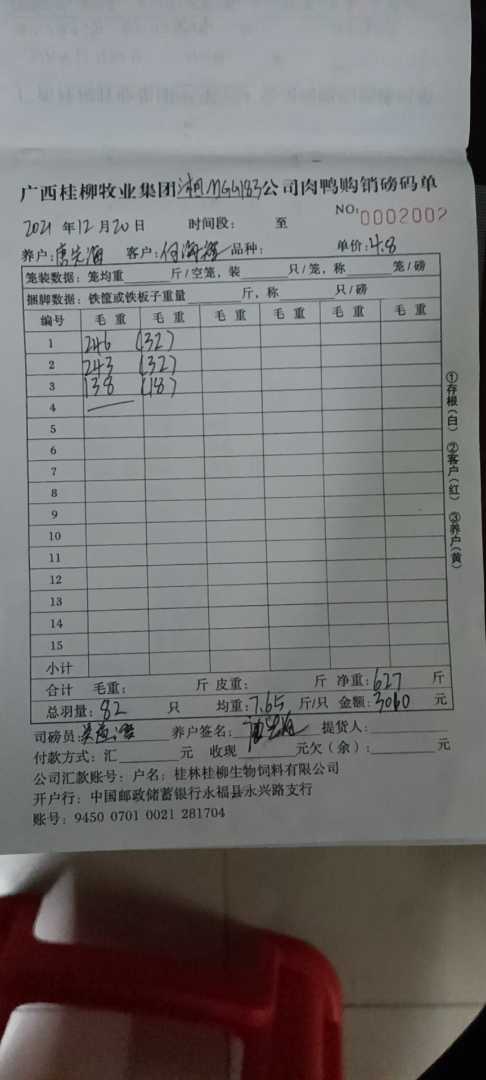 广西桂柳牧业集团湘MGG183公司肉鸭购销磅码单
2021年12月20日 时间段: 至 NO: 0002002
养户: 唐先海 客户: 何海 品种: 单价: 4.8
笼装数据: 笼均重 斤/空笼,装 只/笼,称 笼/磅
捆脚数据: 铁筐或铁板子重量 斤,称 只/磅
编号 毛重 毛重 毛重 毛重 毛重 毛重
1 246 (32)
2 243 (32)
3 138 (18)
4 —
5
6
7
8
9
10
11
12
13
14
15
小计
合计 毛重: 斤 皮重: 斤 净重: 627 斤
总羽量: 82 只 均重: 7.65 斤/只 金额: 3010 元
司磅员: 养户签名: 提货人:
付款方式: 汇 元 收现 元欠(余): 元
公司汇款账号: 户名: 桂林桂柳生物饲料有限公司
开户行: 中国邮政储蓄银行永福县永兴路支行
账号: 9450 0701 0021 281704
①存根(白) ②客户(红) ③养户(黄)